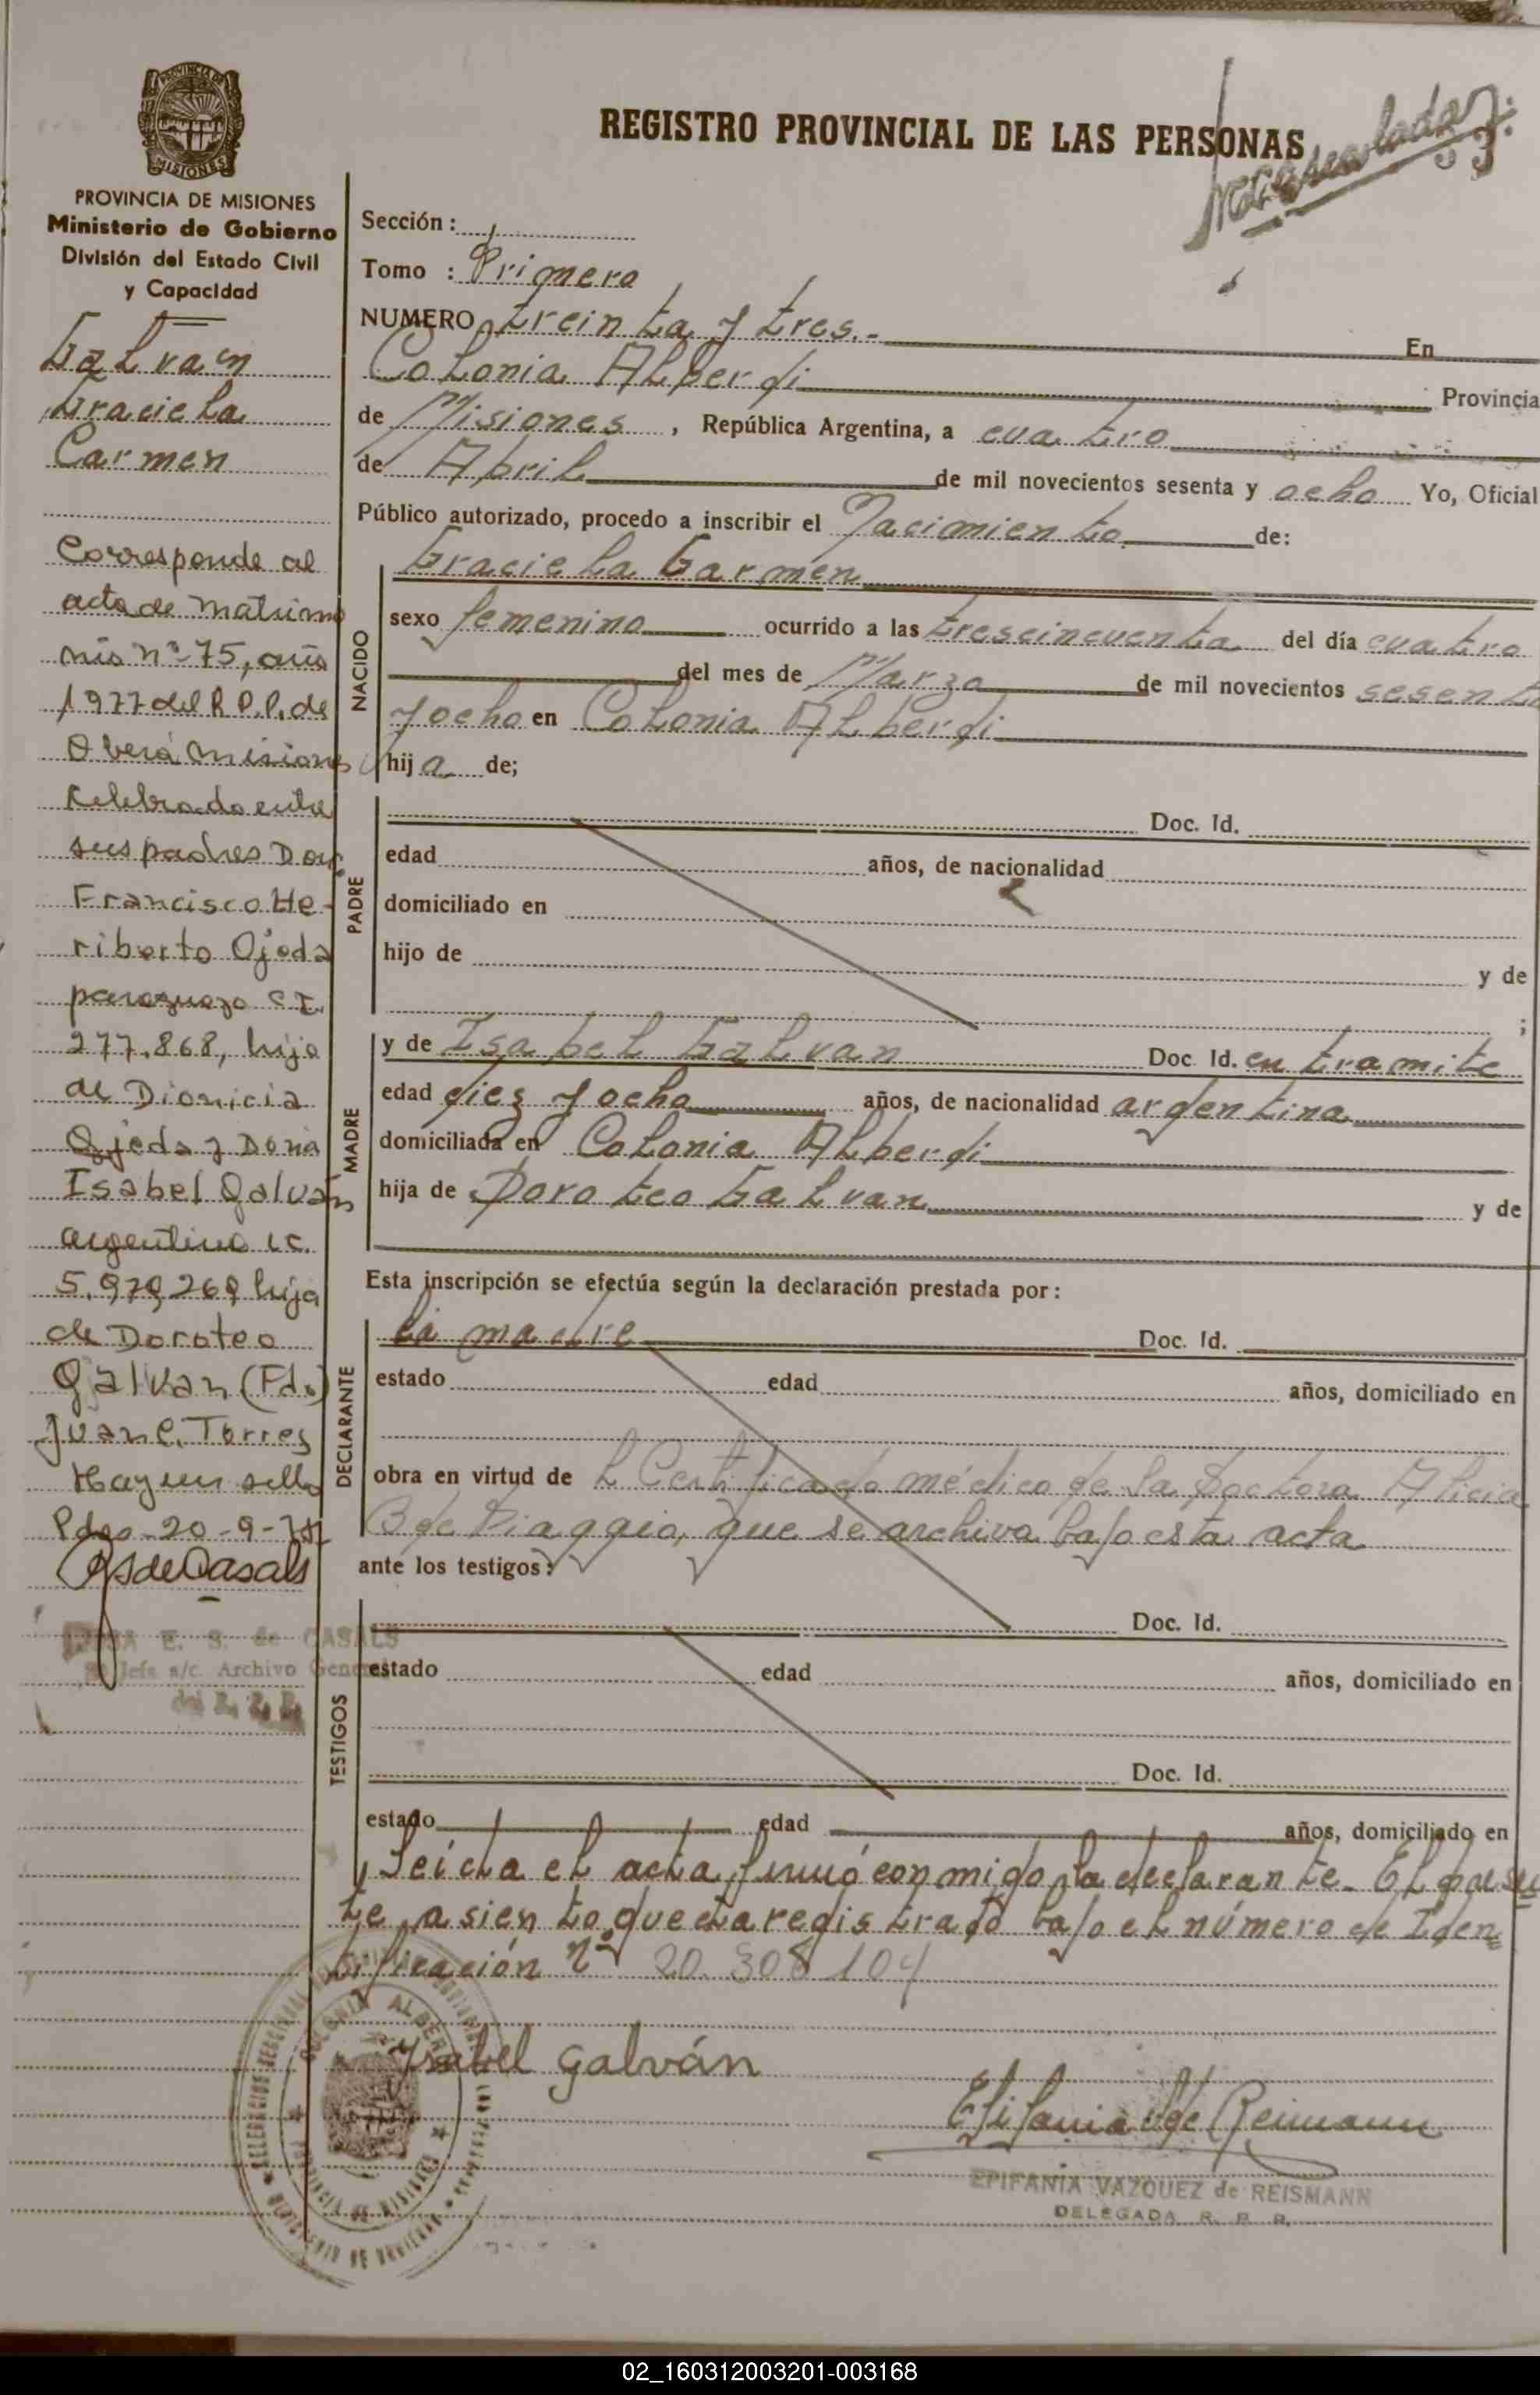 REGISTRO PROVINCIAL DE LAS PERSONAS
33
MISIONES
PROVINCIA DE MISIONES
Ministerio de Gobierno
División del Estado Civil
y Capacidad
Galvan
Graciela
Carmen
Corresponde al
acta de matrimo
nio nº 75, año
1977 del R.P.P. de
Oberá Misiones
celebrado entre
sus padres Don
Francisco He-
riberto Ojeda
paraguayo C.I.
277.868, hijo
de Dionicia
Ojeda y Doña
Isabel Galván
argentina L.C.
hija
de Doroteo
Galvan (Fdo)
Juan C. Torres
Hay un sello
Pdas-20-9-
E. S. de CASALS
Jefa a/c. Archivo General
del R. P. P.
Sección:
Tomo : Primero
NUMERO treinta y tres.- En
Colonia Alberdi Provincia
de Misiones, República Argentina, a cuatro
de Abril de mil novecientos sesenta y ocho Yo, Oficial
Público autorizado, procedo a inscribir el Nacimiento de:
NACIDO
Graciela Carmen
sexo femenino ocurrido a las tres cincuenta del día cuatro
del mes de Marzo de mil novecientos sesenta
y ocho en Colonia Alberdi
hija de;
PADRE
Doc. Id.
edad años, de nacionalidad
domiciliado en
hijo de y de
;
MADRE
y de Isabel Galvan Doc. Id. en tramite
edad diez y ocho años, de nacionalidad argentina
domiciliada en Colonia Alberdi
hija de Doroteo Galvan y de
Esta inscripción se efectúa según la declaración prestada por:
DECLARANTE
la madre Doc. Id.
estado edad años, domiciliado en
obra en virtud de l Certificado médico de la Doctora Alicia
B de Biaggio, que se archiva bajo esta acta
ante los testigos:
TESTIGOS
Doc. Id.
estado edad años, domiciliado en
Doc. Id.
estado edad años, domiciliado en
Leida el acta, firmó conmigo la declarante. El presen
te asiento queda registrado bajo el número de Iden
tificación Nº 20.308.104
Ysabel Galván
Epifania V de Reismann
EPIFANIA VAZQUEZ de REISMANN
DELEGADA R. P. P.
COLONIA ALBERDI
PROVINCIA DE MISIONES
02_160312003201-003168